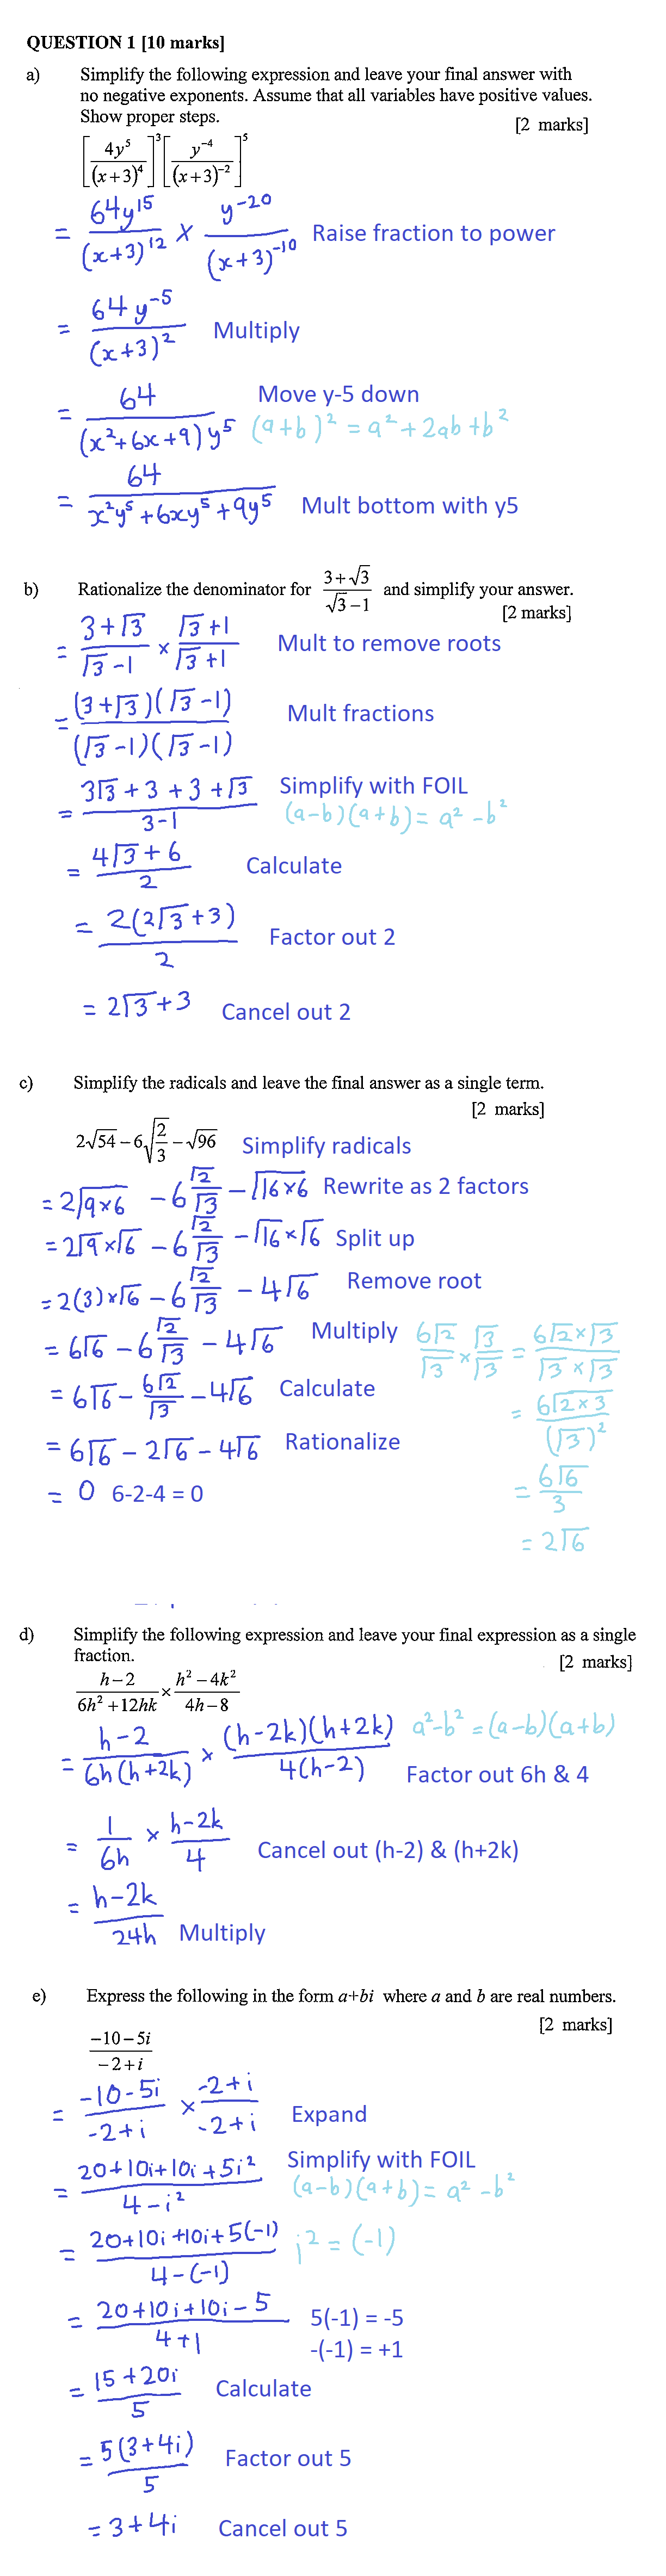 QUESTION 1 [10 marks]
a) Simplify the following expression and leave your final answer with
no negative exponents. Assume that all variables have positive values.
Show proper steps. [2 marks]
[4y⁵/(x+3)⁴]³[y⁻⁴/(x+3)⁻²]⁵
= 64y¹⁵/(x+3)¹² × y⁻²⁰/(x+3)⁻¹⁰ Raise fraction to power
= 64y⁻⁵/(x+3)² Multiply
= 64/(x²+6x+9)y⁵ Move y-5 down
(a+b)² = a²+2ab+b²
= 64/x²y⁵+6xy⁵+9y⁵ Mult bottom with y5
b) Rationalize the denominator for (3+√3)/(√3−1) and simplify your answer.
[2 marks]
= 3+√3/√3-1 × √3+1/√3+1 Mult to remove roots
= (3+√3)(√3-1)/(√3-1)(√3-1) Mult fractions
= 3√3+3+3+√3/3-1 Simplify with FOIL
(a-b)(a+b)= a²-b²
= 4√3+6/2 Calculate
= 2(2√3+3)/2 Factor out 2
= 2√3+3 Cancel out 2
c) Simplify the radicals and leave the final answer as a single term.
[2 marks]
2√54−6√(2/3)−√96 Simplify radicals
= 2√9×6 - 6 √2/√3 - √16×6 Rewrite as 2 factors
= 2√9×√6 - 6 √2/√3 - √16×√6 Split up
= 2(3)×√6 - 6 √2/√3 - 4√6 Remove root
= 6√6 - 6 √2/√3 - 4√6 Multiply
6√2/√3 × √3/√3 = 6√2×√3/√3×√3
= 6√6 - 6√2/√3 - 4√6 Calculate
= 6√2×3/(√3)²
= 6√6 - 2√6 - 4√6 Rationalize
= 6√6/3
= 0 6-2-4 = 0
= 2√6
d) Simplify the following expression and leave your final expression as a single
fraction. [2 marks]
(h−2)/(6h²+12hk) × (h²−4k²)/(4h−8)
= h-2/6h(h+2k) × (h-2k)(h+2k)/4(h-2) a²-b²=(a-b)(a+b)
Factor out 6h & 4
= 1/6h × h-2k/4 Cancel out (h-2) & (h+2k)
= h-2k/24h Multiply
e) Express the following in the form a+bi where a and b are real numbers.
[2 marks]
(−10−5i)/(−2+i)
= -10-5i/-2+i × -2+i/-2+i Expand
= 20+10i+10i+5i²/4-i² Simplify with FOIL
(a-b)(a+b)= a²-b²
= 20+10i+10i+5(-1)/4-(-1) i² = (-1)
= 20+10i+10i-5/4+1 5(-1) = -5
-(-1) = +1
= 15+20i/5 Calculate
= 5(3+4i)/5 Factor out 5
= 3+4i Cancel out 5